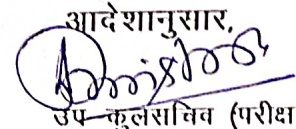 आदेशानुसार,
उप–कुलसचिव (परीक्ष